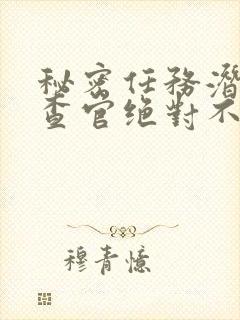 秘密任務潛
查官絕對不
穆青憶